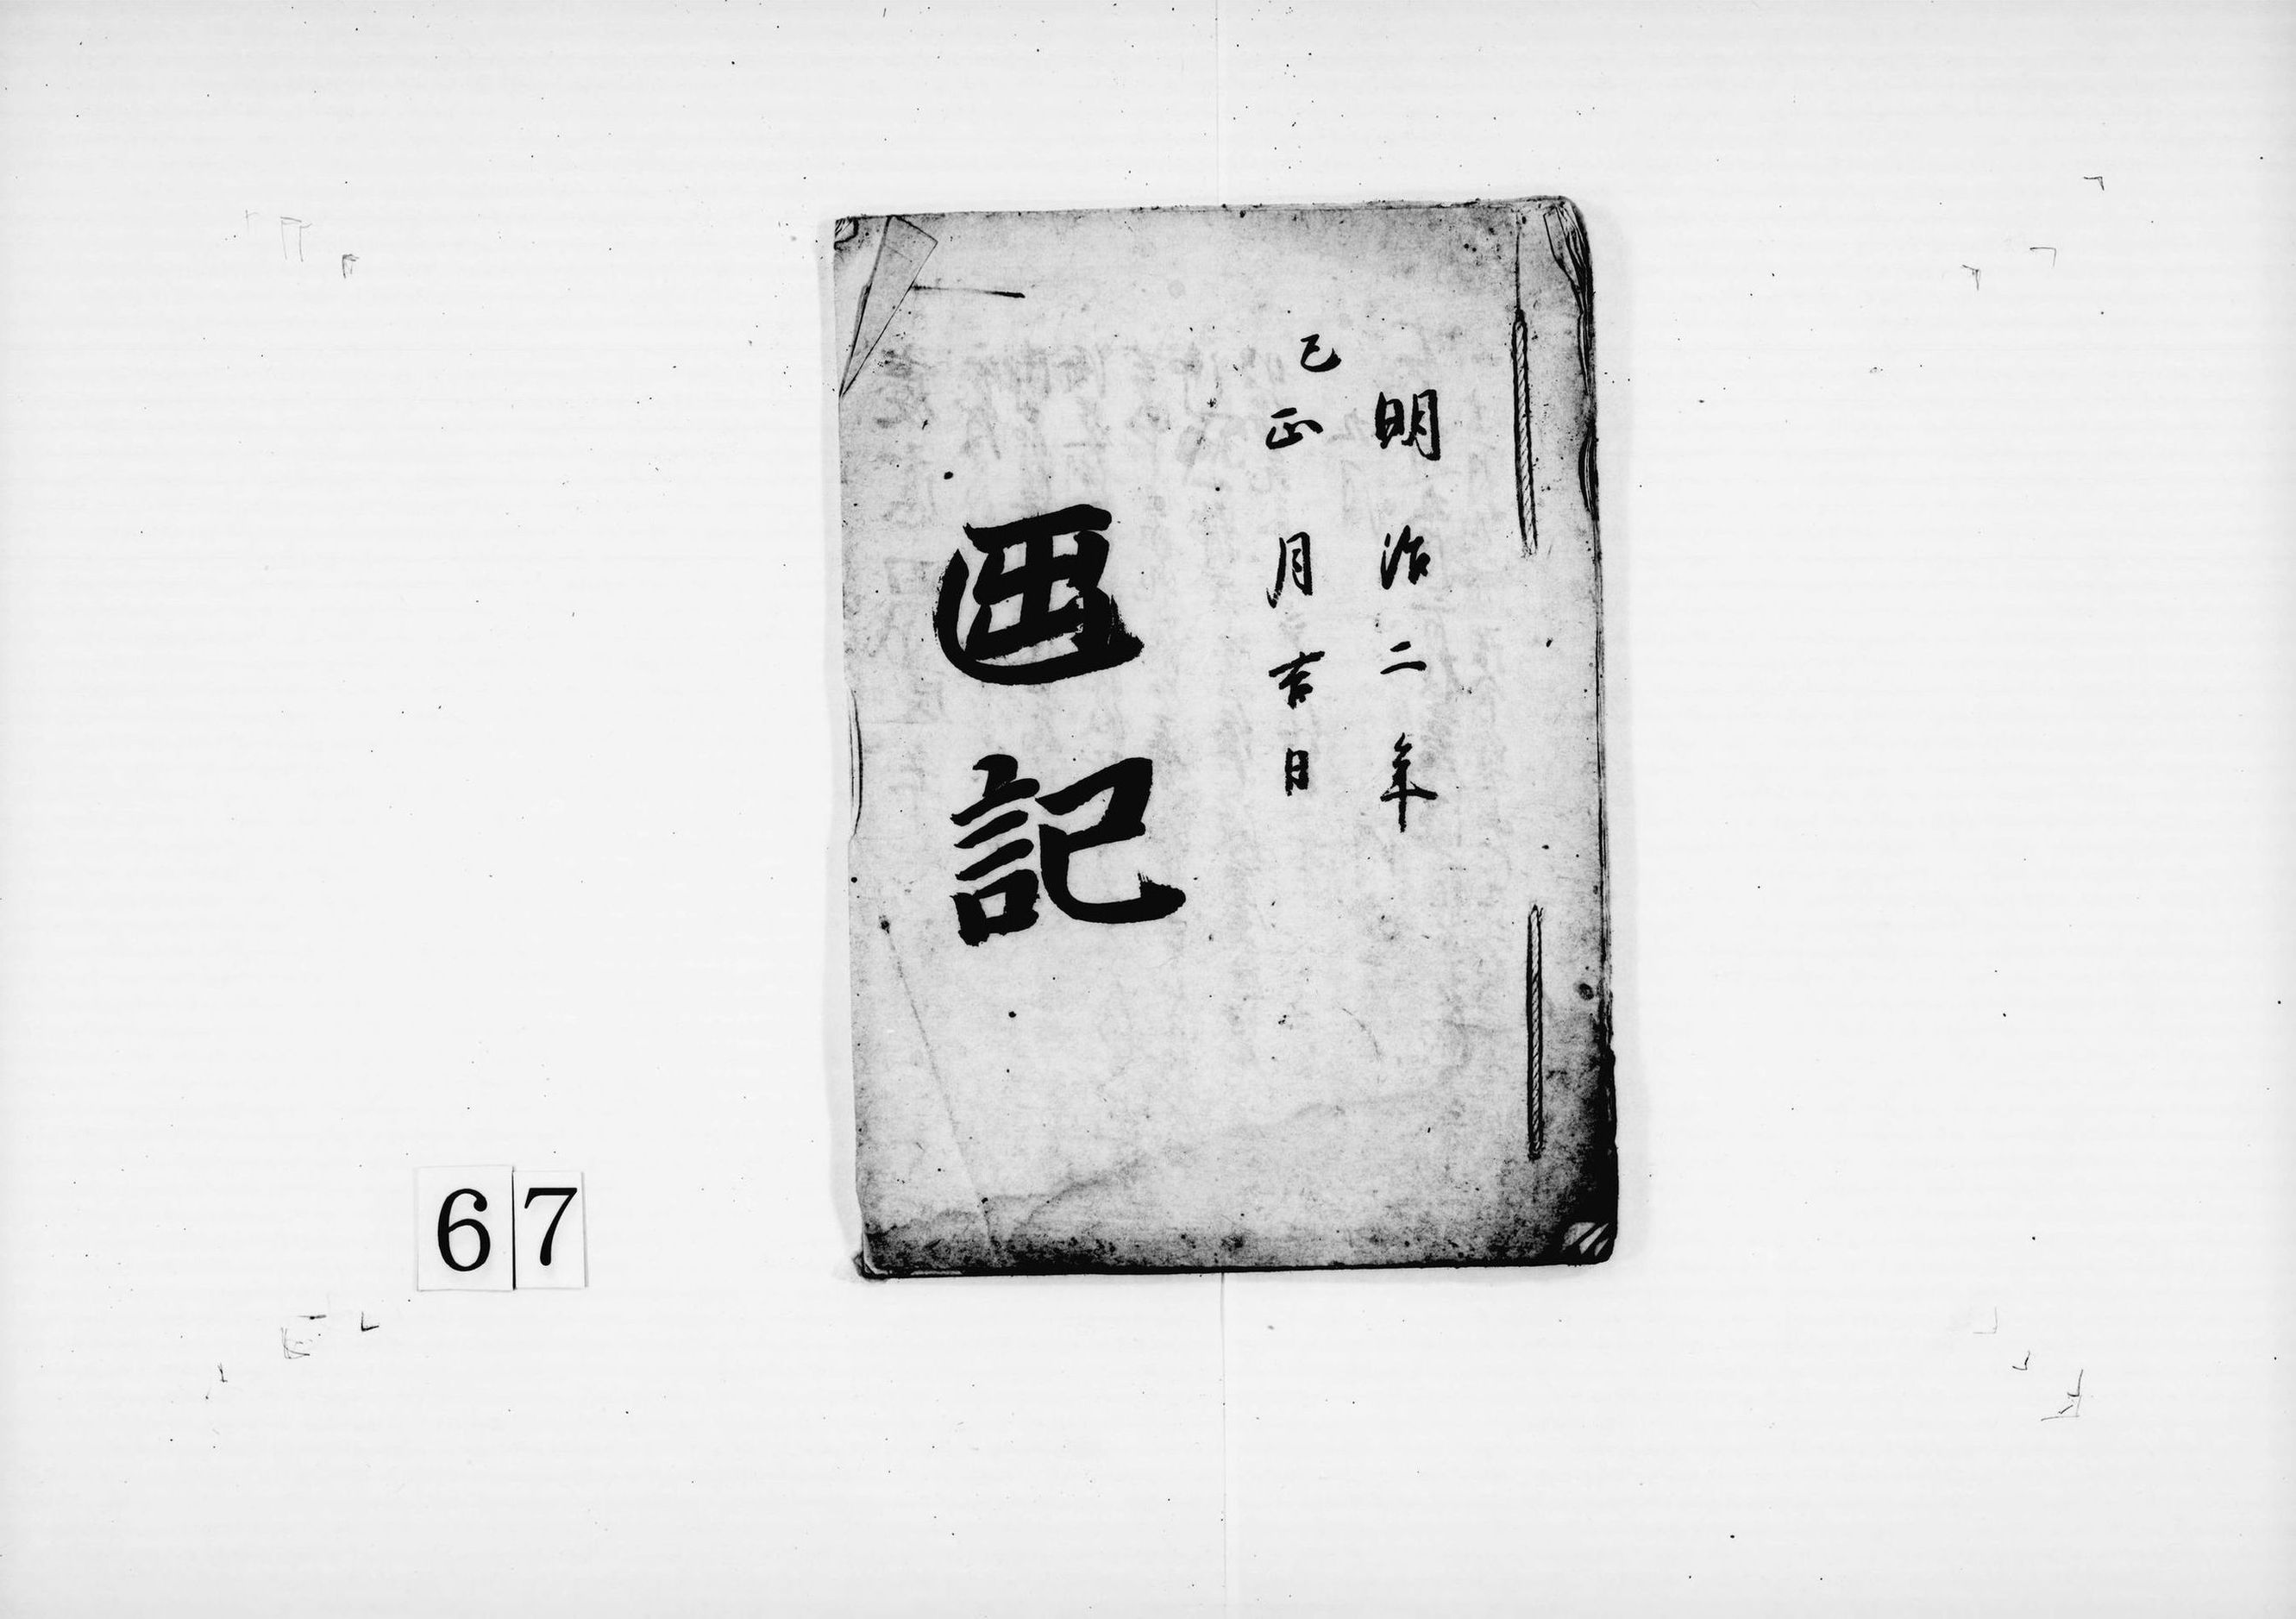 明治二年
巳正月吉日
画記
67